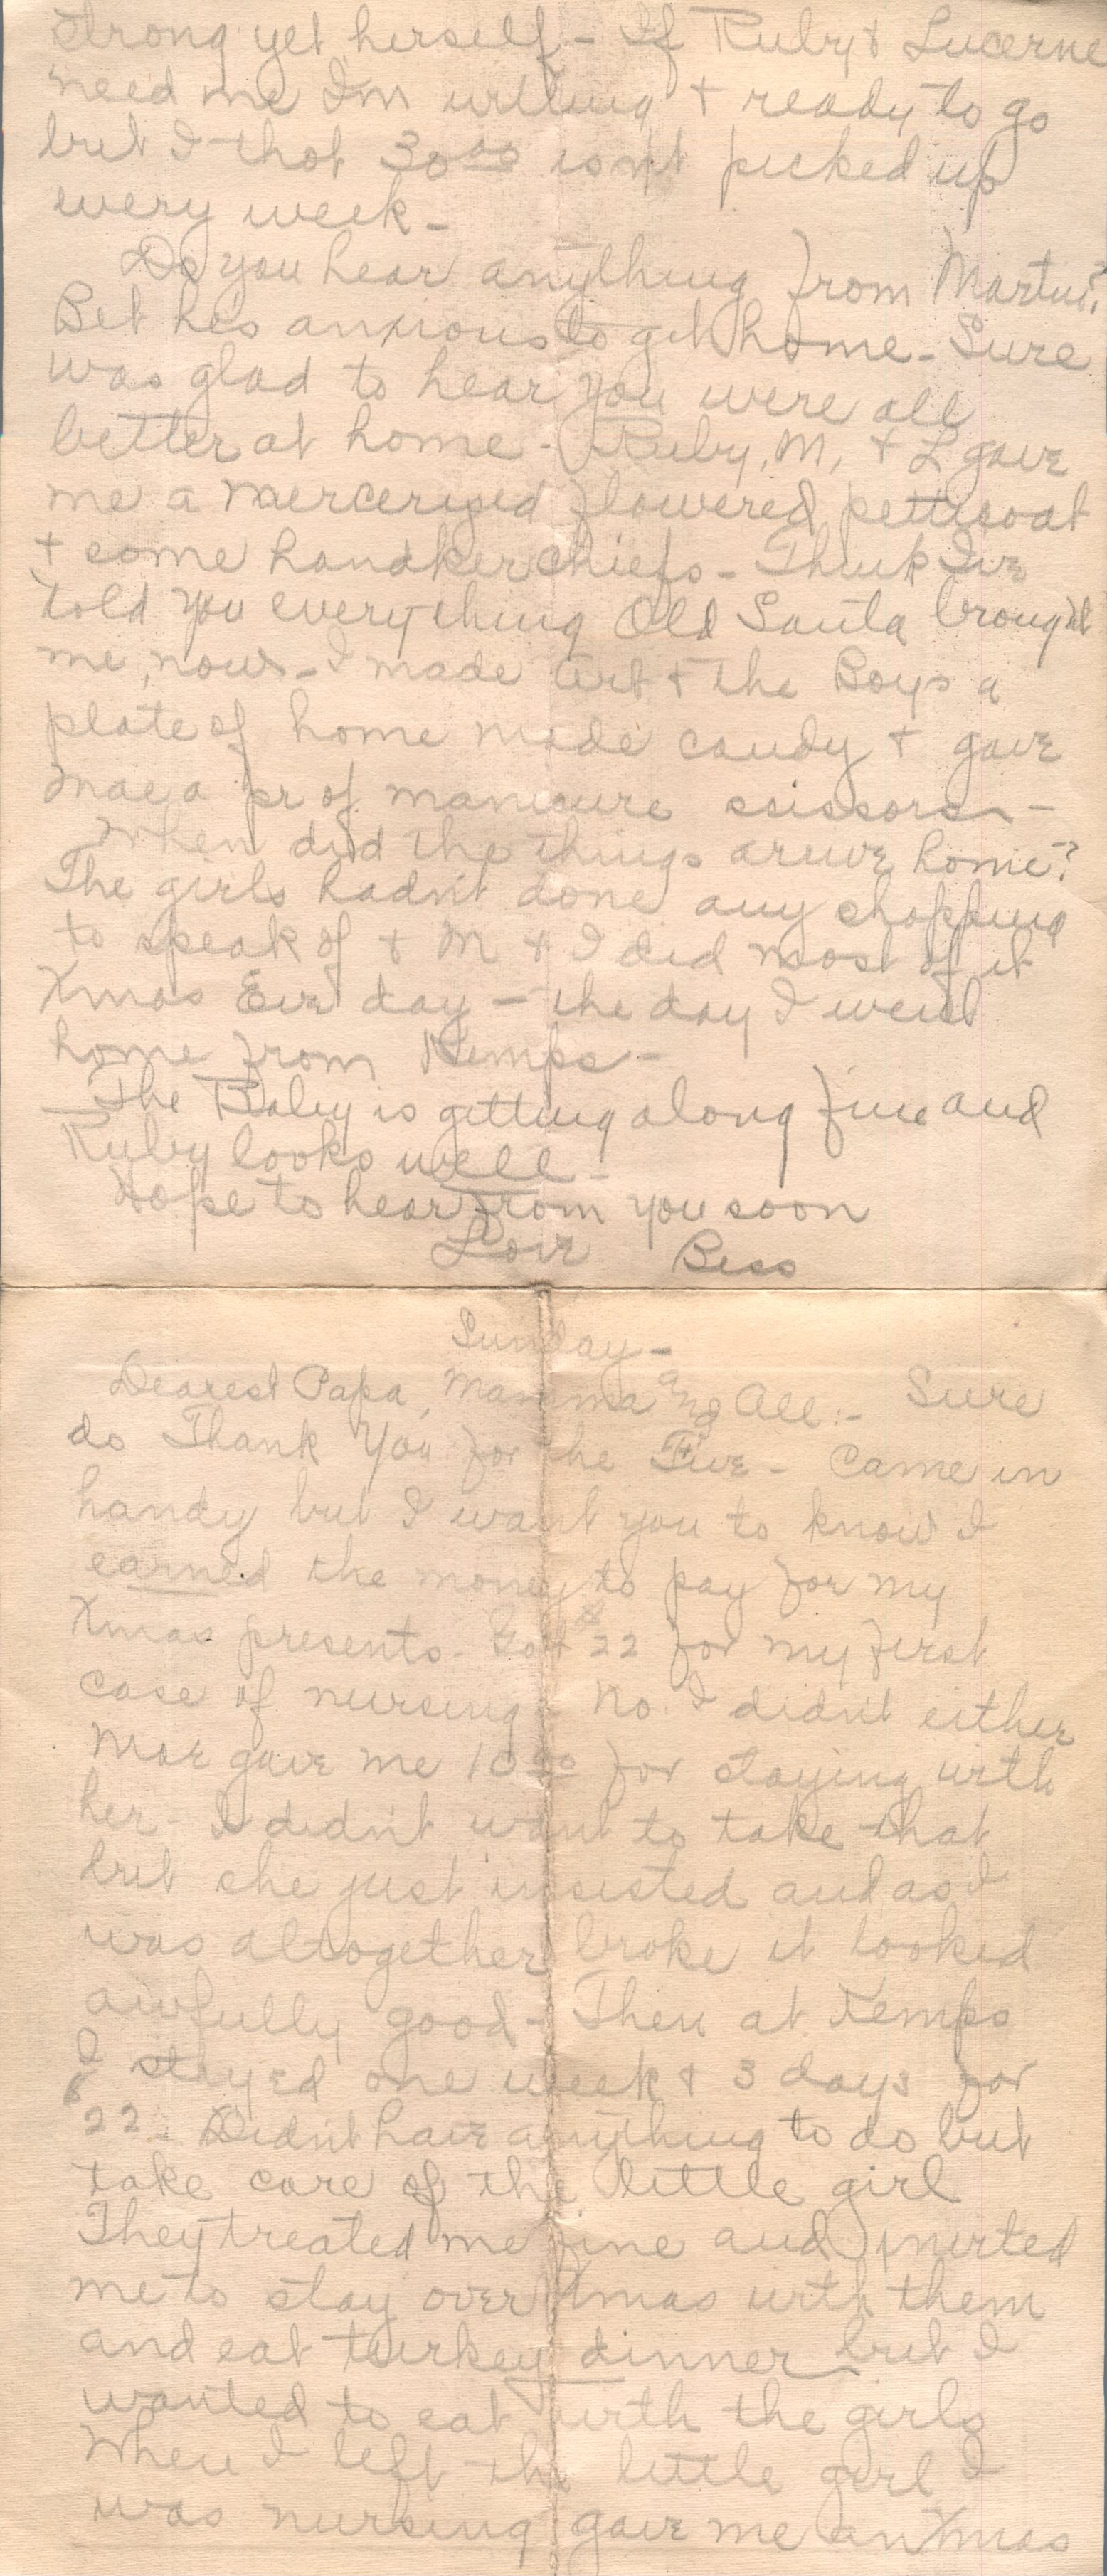 strong yet herself - If Ruby & Lucerne
need me I'm willing + ready to go
but I thot 30⁰⁰ isn't picked up
every week -
Do you hear anything from Martin?
Bet hes anxious to get home - Sure
was glad to hear you were all
better at home - Ruby, M, + L gave
me a mercerized flowered petticoat
+ some handkerchiefs - Think I've
told you everything Old Santa brought
me, now - I made Art + the Boys a
plate of home made candy + gave
Mae a pr of manicure scissors -
When did the things arive home?
The girls hadn't done any shopping
to speak of + M + I did most of it
Xmas Eve day - the day I went
home from Kemps -
The Baby is getting along fine and
Ruby looks well -
Hope to hear from you soon
Love Bess
Sunday -
Dearest Papa, Mamma and All:- Sure
do Thank You for the Five - Came in
handy but I want you to know I
earned the money to pay for my
Xmas presents. Got $22 for my first
case of nursing - No I didn't either
Mae gave me 10⁰⁰ for staying with
her - I didn't want to take that
but she just insisted and as I
was altogether broke it looked
awfully good - Then at Kemps
I stayed one week + 3 days for
$22. Didn't have anything to do but
take care of the little girl
They treated me fine and invited
me to stay over Xmas with them
and eat turkey dinner but I
wanted to eat with the girls
When I left the little girl I
was nursing gave me an Xmas